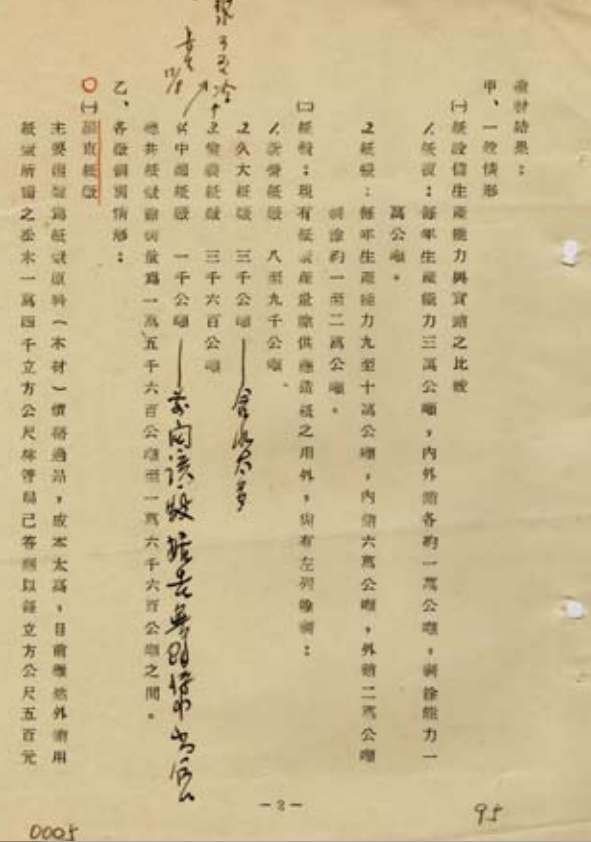 檢討結果：
甲、一般情形
㈠紙漿設備生產能力與實銷之比較
1.紙板：每年生產能力三萬公噸，內外銷各約一萬公噸，剩餘能力一
萬公噸。
2.紙張：每年生產能力九至十萬公噸，內銷六萬公噸，外銷二萬公噸
剩餘約一至二萬公噸。
㈡紙漿：現有紙漿產量除供應造紙之用外，尚有左列餘剩：
1.新營紙廠　八至九千公噸
2.久大紙廠　三千公噸——含水太多
3.　　紙廠　三千六百公噸
4.中　紙廠　一千公噸
總共紙漿　　量為一萬五千六百公噸至一萬六千六百公噸之間。
乙、各廠個別情形：
㈠　　紙廠
主要　　為紙漿原料（木材）價格過昂，成本太高，目前　然外銷用
紙漿所需之松木一萬四千立方公尺林管局已答應以每立方公尺五百元
－2－
95
0005